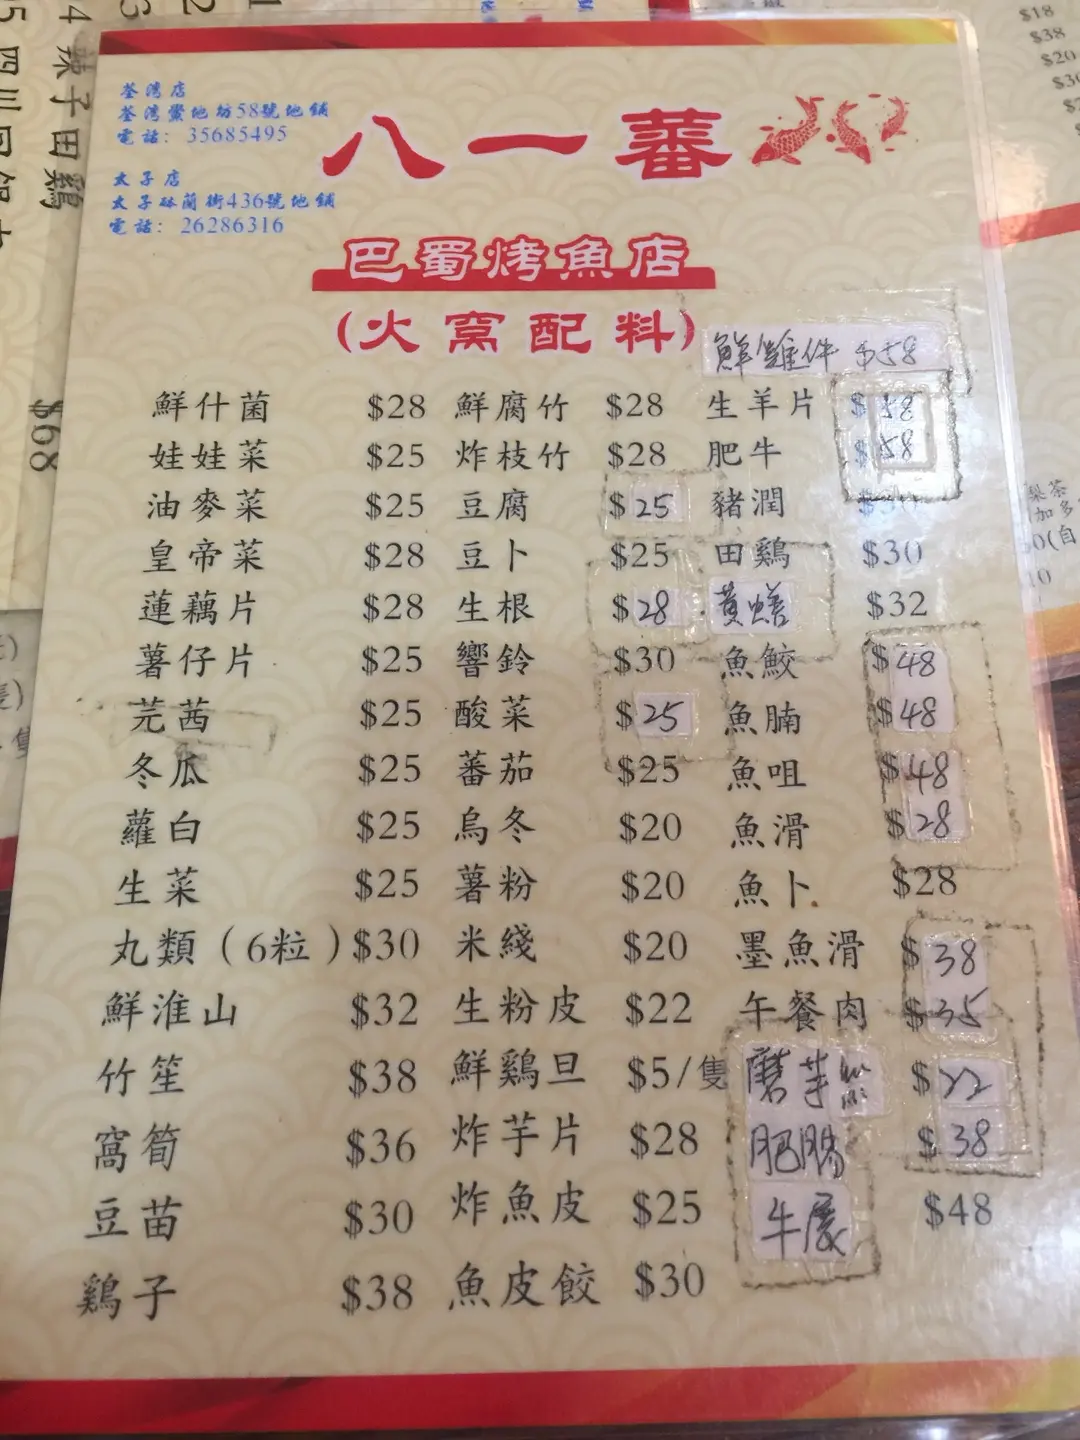 荃灣店
荃灣鱟地坊58號地鋪
電話: 35685495
太子店
太子砵蘭街436號地鋪
電話: 26286316
八一蕃
巴蜀烤魚店
(火窩配料)
鮮雞件 $58
鮮什菌 $28 鮮腐竹 $28 生羊片 $58
娃娃菜 $25 炸枝竹 $28 肥牛 $58
油麥菜 $25 豆腐 $25 豬潤 $30
皇帝菜 $28 豆卜 $25 田鷄 $30
蓮藕片 $28 生根 $28 黃鱔 $32
薯仔片 $25 響鈴 $30 魚鮫 $48
芫茜 $25 酸菜 $25 魚腩 $48
冬瓜 $25 蕃茄 $25 魚咀 $48
蘿白 $25 烏冬 $20 魚滑 $28
生菜 $25 薯粉 $20 魚卜 $28
丸類(6粒) $30 米綫 $20 墨魚滑 $38
鮮淮山 $32 生粉皮 $22 午餐肉 $35
竹笙 $38 鮮鷄旦 $5/隻 磨芋絲 $22
窩筍 $36 炸芋片 $28 肥腸 $38
豆苗 $30 炸魚皮 $25 牛展 $48
鷄子 $38 魚皮餃 $30
4 辣子田鷄
$68
$18
$38
$20